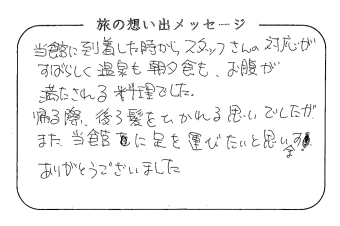 旅の想い出メッセージ
当館に到着した時から、スタッフさんの対応が
すばらしく温泉も朝夕食も、お腹が
満たされる料理でした。
帰る際、後ろ髪をひかれる思いでしたが
また、当館に足を運びたいと思います。
ありがとうございました